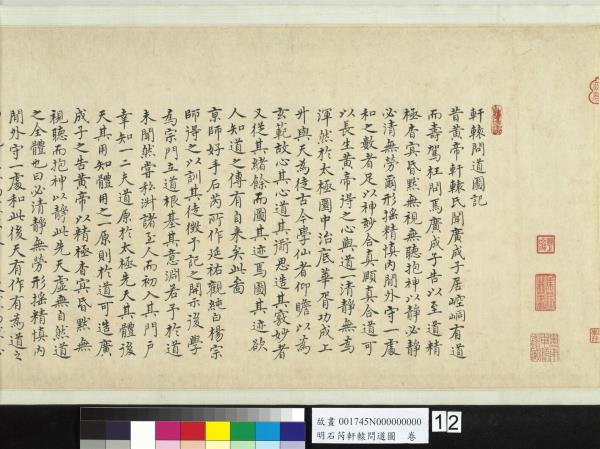 軒轅問道圖記
昔黃帝軒轅氏聞廣成子居崆峒有道
而壽駕枉問焉廣成子告以至道精
極杳冥昏默無視無聽抱神以靜必靜
必清無勞爾形搖精慎內閉外守一處
和之數者足以神妙合真頤真合道可
以長生黃帝得之心與道一清靜無為
渾然於太極圈中治底華胥功成上
升與天為徒古今學仙者仰瞻以為
玄範故心其心道其衜思造其竅妙者
又從其緒餘而圖其迹焉圖其迹欲
人知道之傳有自來矣此啚
京師好手石芮所作延祐觀純白楊宗
師得之以訓其徒徵予記之開示後學
為宗門立道根基其意淵若予於道
未聞然嘗私淑諸至人而初入其門戶
幸知一二夫道原於太極先天其體後
天其用知體用之一原則於道可造廣
成子之告黃帝以精極杳冥昏默無
視聽而抱神以靜此先天虛無自然道
之全體也曰必清靜無勞形搖精慎內
閉外守一處和此後天有作有為道之
故畫 001745N000000000
明石芮軒轅問道圖 卷
12